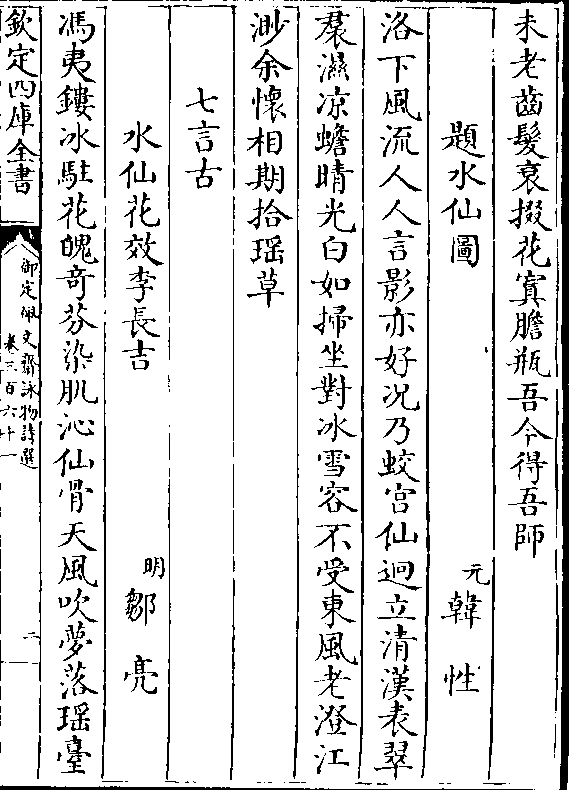 未老齒髮衰掇花寘膽瓶吾今得吾師
題水仙圖 元韓性
洛下風流人人言影亦好況乃蛟宫仙迥立清漢表翠
裠濕凉蟾晴光白如掃坐對冰雪容不受東風老澄江
渺余懷相期拾瑶草
七言古
水仙花效李長吉 明鄒亮
馮夷鏤冰駐花魄奇芬染肌沁仙骨天風吹夢落瑶臺
欽定四庫全書
御定佩文齋詠物詩選
卷三百六十一
二